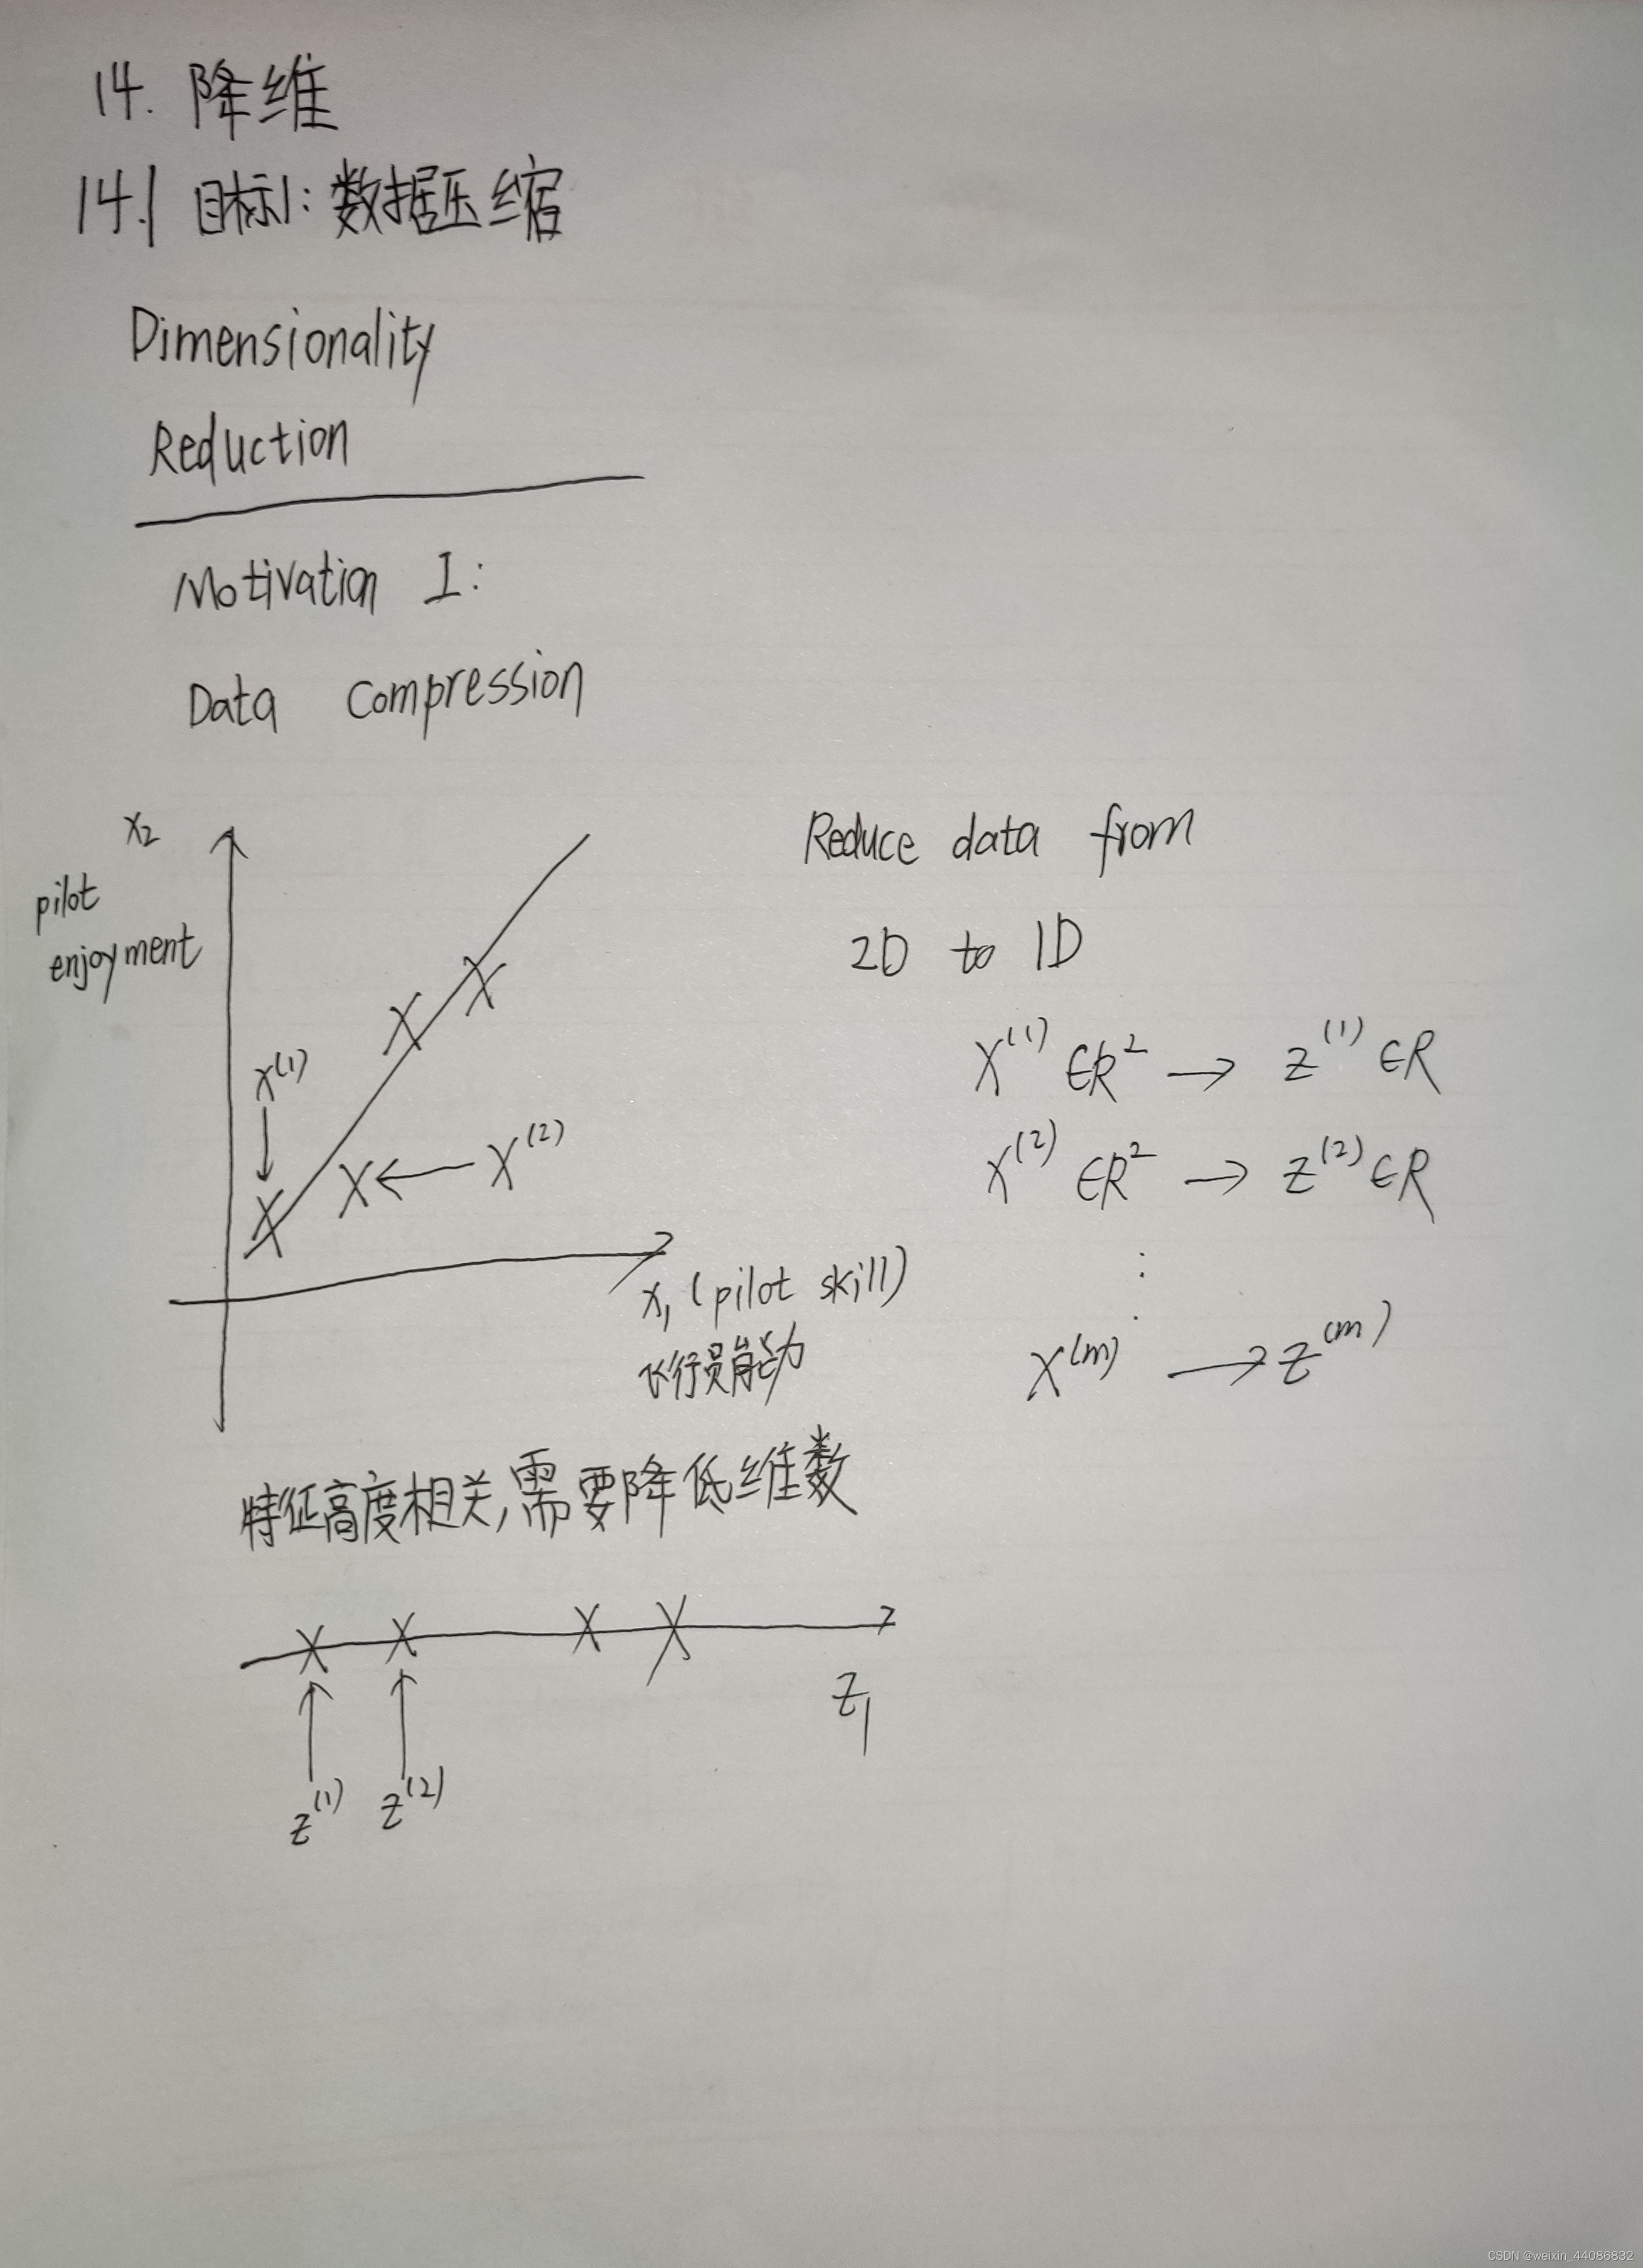 14. 降维
14.1 目标1: 数据压缩
Dimensionality
Reduction
Motivation I:
Data Compression
x₂
pilot
enjoyment
x⁽¹⁾
x⁽²⁾
x₁ (pilot skill)
飞行员能力
Reduce data from
2D to 1D
x⁽¹⁾ ∈R² → z⁽¹⁾ ∈R
x⁽²⁾ ∈R² → z⁽²⁾ ∈R
⋮
x⁽ᵐ⁾ → z⁽ᵐ⁾
特征高度相关,需要降低维数
z₁
z⁽¹⁾ z⁽²⁾
CSDN @weixin_44086832